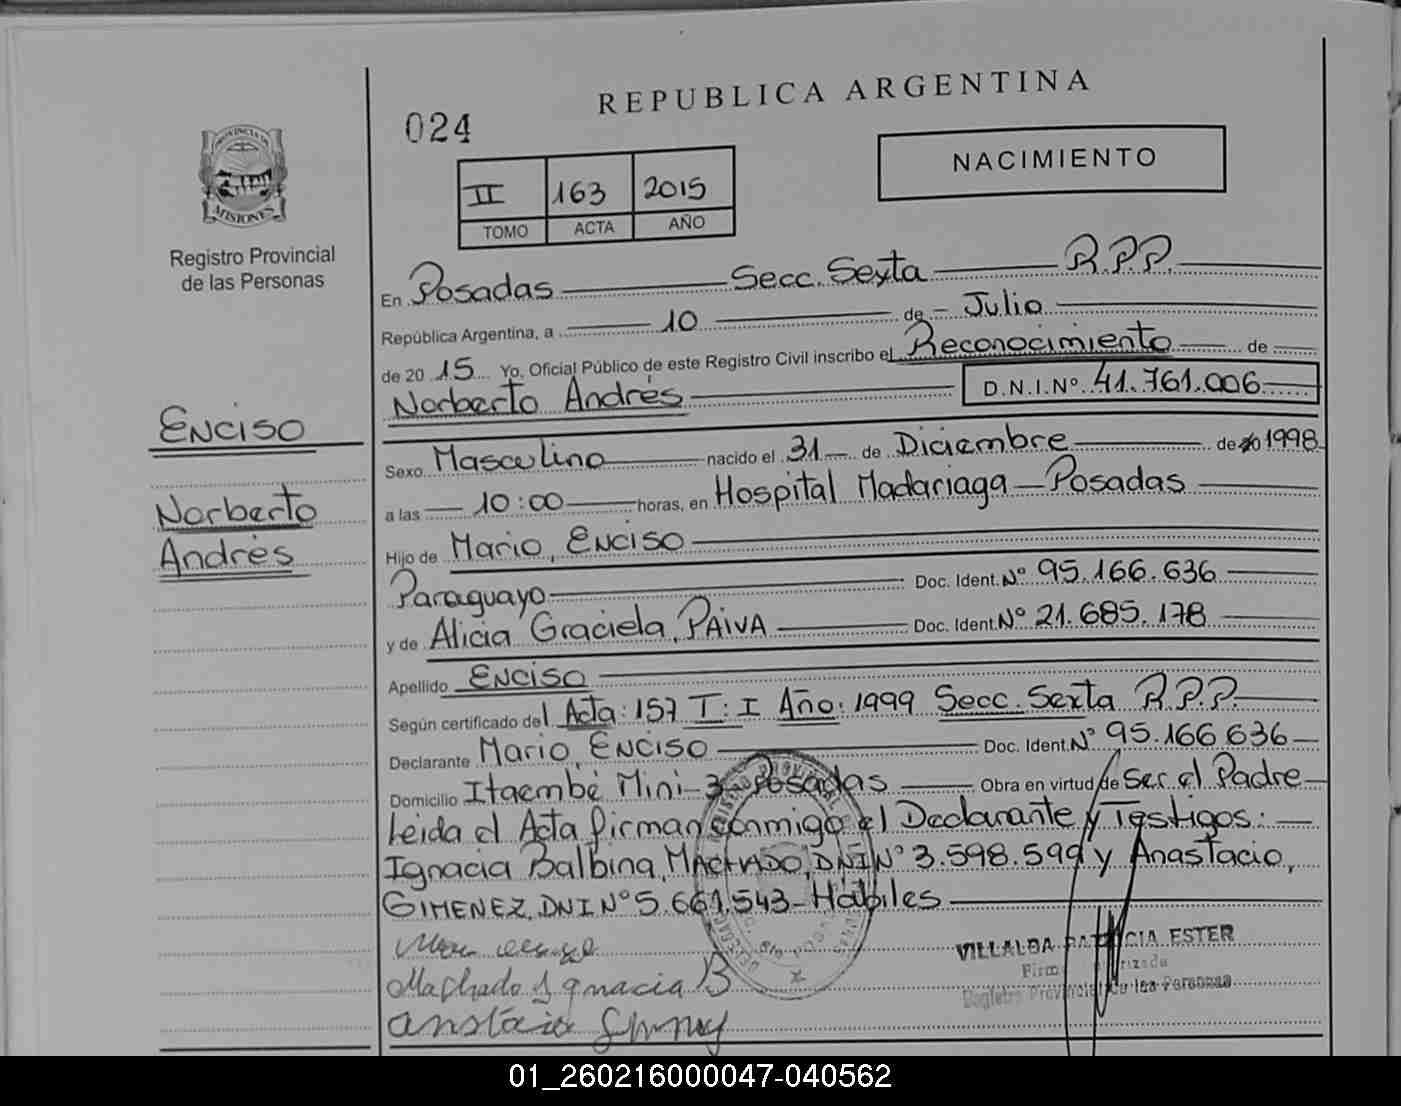 REPUBLICA ARGENTINA
024
NACIMIENTO
II 163 2015
TOMO ACTA AÑO
PROVINCIA DE
MISIONES
Registro Provincial
de las Personas
En Posadas Secc. Sexta R.P.P.
República Argentina, a 10 de Julio
de 20 15 Yo, Oficial Público de este Registro Civil inscribo el Reconocimiento de
Norberto Andrés D.N.I.Nº 41.761.006
ENCISO
Norberto
Andrés
Sexo Masculino nacido el 31 de Diciembre de 1998
a las 10:00 horas, en Hospital Madariaga - Posadas
Hijo de Mario, ENCISO
Paraguayo Doc. Ident. Nº 95.166.636
y de Alicia Graciela, PAIVA Doc. Ident. Nº 21.685.178
Apellido ENCISO
Según certificado del Acta: 157 T: I Año: 1999 Secc. Sexta R.P.P.
Declarante Mario, ENCISO Doc. Ident. Nº 95.166.636
Domicilio Itaembé Mini - 3 Posadas Obra en virtud de Ser el Padre
Leida el Acta firman conmigo el Declarante y Testigos:
Ignacia Balbina, MACHADO, DNI Nº 3.598.599 y Anastacio,
GIMENEZ, DNI Nº 5.661.543 - Hábiles
Machado Ignacia B
VILLALBA PATRICIA ESTER
Registro Provincial de las Personas
01_260216000047-040562